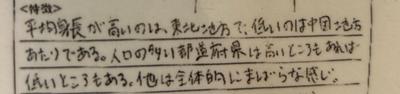 <特徴>
平均身長が高いのは、東北地方で、低いのは中国地方
あたりである。人口の多い都道府県は高いところもあれば
低いところもある。他は全体的にまばらな感じ。